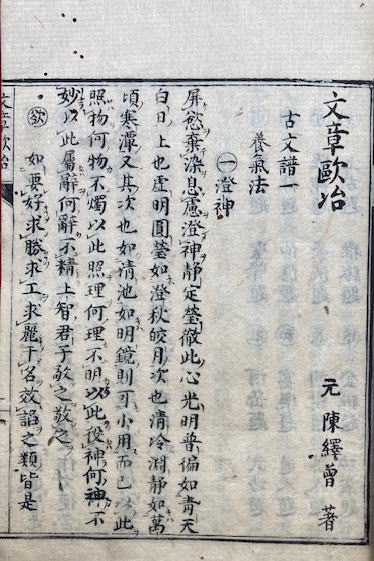 文章歐冶
元 陳繹曾 著
古文譜一
養氣法
㊀澄神
屏慾棄染息慮澄神靜定瑩徹此心光明普徧如青天
白日上也虛明圓瑩如澄秋皎月次也清冷淵靜如萬
頃寒潭又其次也如清池如明鏡則可小用而已以此
照物何物不燭以此照理何理不明以此役神何神不
妙以此屬辭何辭不精上智君子敬之敬之
㊀慾 如要好求勝求工求麗干名效諂之類皆是
文章歐冶